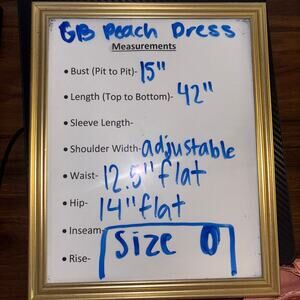 GB Peach Dress
Measurements
• Bust (Pit to Pit)- 15"
• Length (Top to Bottom)- 42"
• Sleeve Length-
• Shoulder Width- adjustable
• Waist- 12.5" flat
• Hip- 14" flat
• Inseam-
• Rise-
Size 0